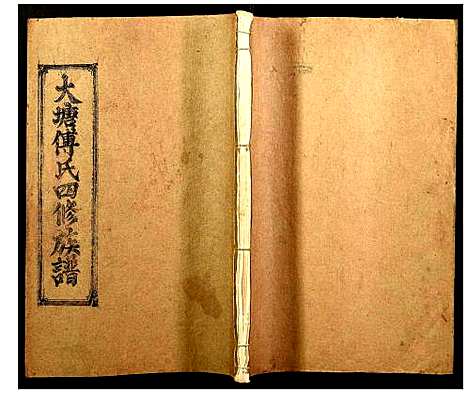 大塘傅氏四修族譜